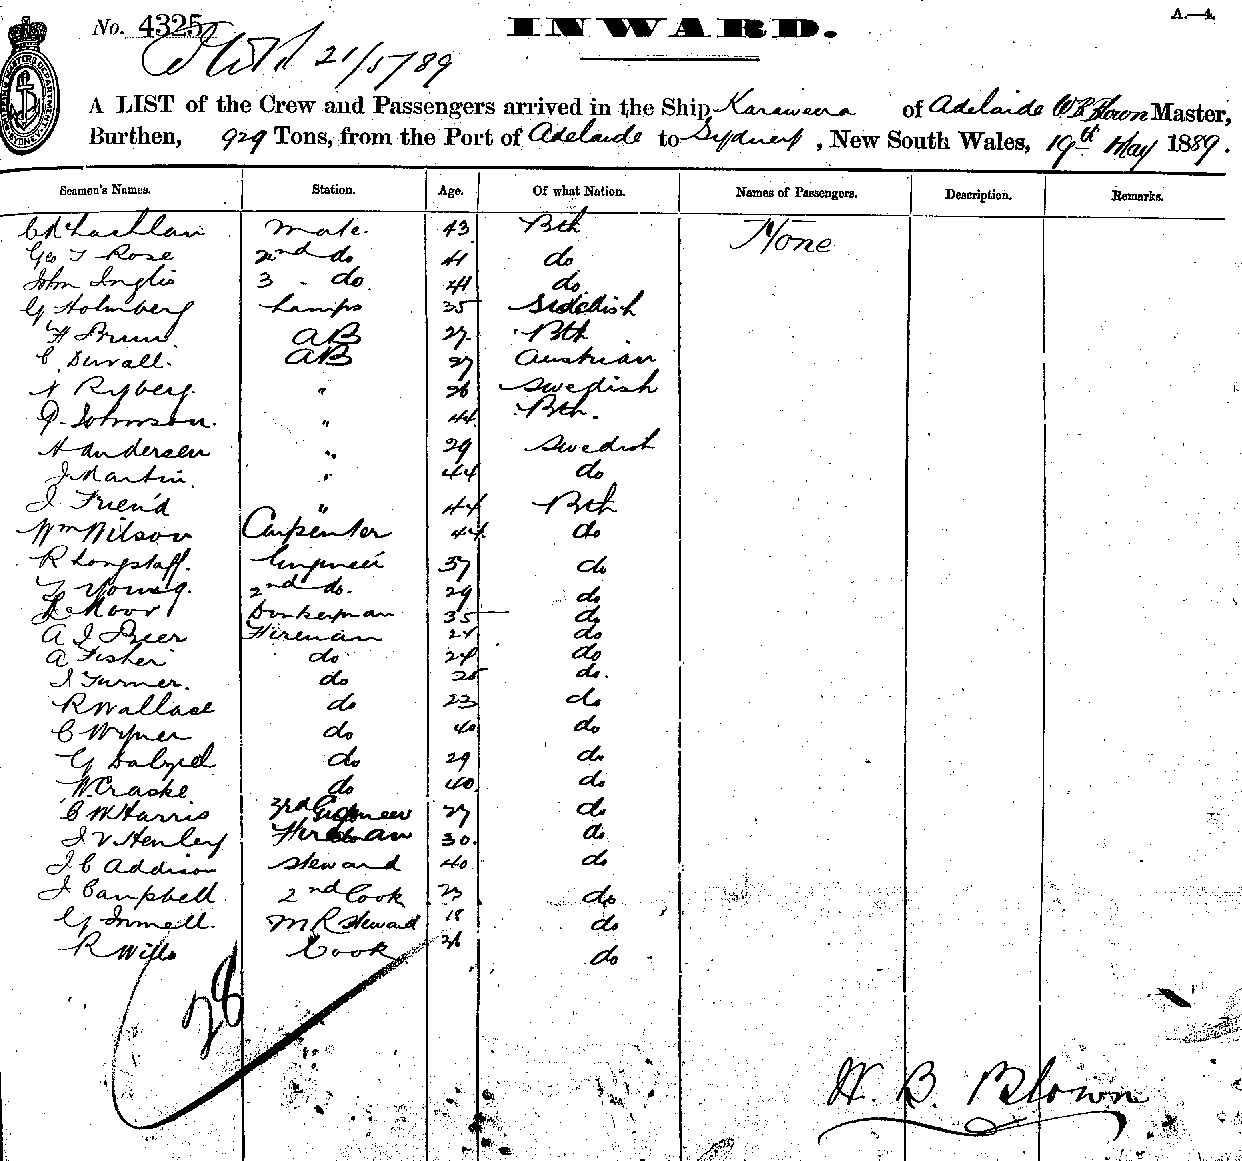 No. 4325
INWARD.
A.—4.
21/5/89
A LIST of the Crew and Passengers arrived in the Ship Karaweera of Adelaide W B Blown Master,
Burthen, 929 Tons, from the Port of Adelaide to Sydney, New South Wales, 19th May 1889.
Seamen's Names. Station. Age. Of what Nation. Names of Passengers. Description. Remarks.
C McLachlan Mate. 43 Bth None
Geo T Rose 2nd do 41 do
John Inglis 3 do. 44 do
G Holmberg Lamps 35 Swedish
H Brun AB 27 Bth
C Duvall. AB 27 Austrian
N Ryberg. " 26 Swedish
P. Johnson. " 44 Bth.
A Andersen " 29 Swedish
J. Martin. " 44 do
J Friend " 44 Bth
Wm Wilson Carpenter 44 do
R Longstaff. Engineer 37 do
T Young. 2nd do. 29 do
Moor Donkeyman 35 do
A J Beer Fireman 24 do
A Fisher do 24 do
J Turner. do 25 do.
R Wallace do 23 do
C Wymer do 40 do
G Dalziel do 29 do
W. Craske do 40 do
C W Harris 3rd Engineer 27 do
J V Henley Fireman 30. do
J C Addison Steward 40 do
J Campbell 2nd Cook 23 do
G Immell. M R Steward 18 do
R Wills Cook 26 do
28
W. B. Blown